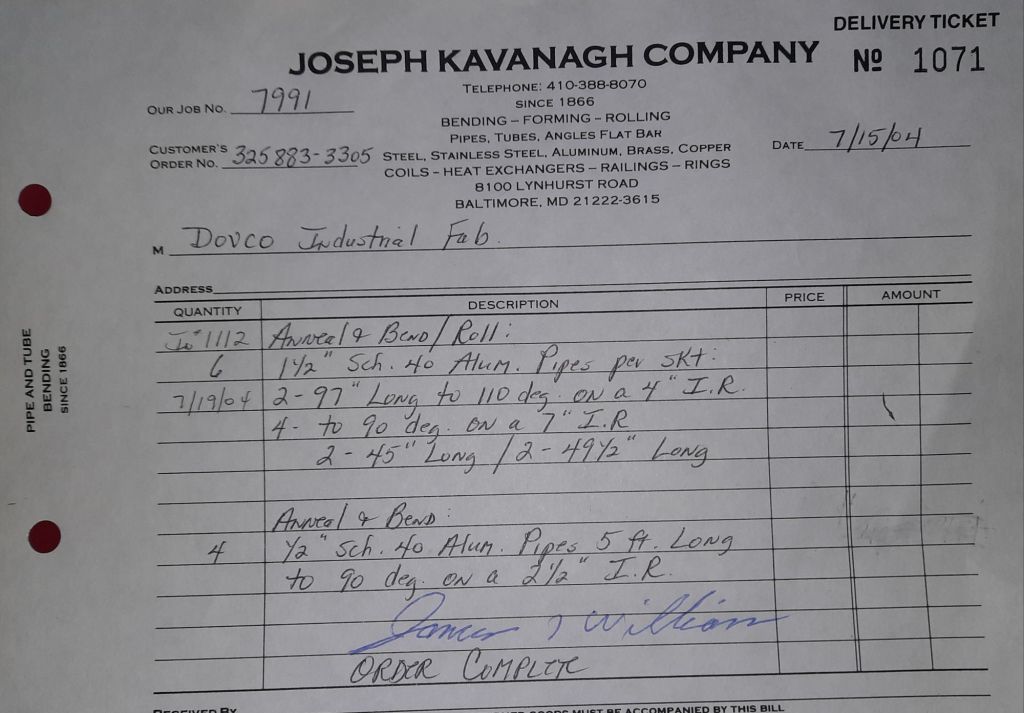 DELIVERY TICKET
JOSEPH KAVANAGH COMPANY
Nº 1071
TELEPHONE: 410-388-8070
SINCE 1866
BENDING – FORMING – ROLLING
PIPES, TUBES, ANGLES FLAT BAR
STEEL, STAINLESS STEEL, ALUMINUM, BRASS, COPPER
COILS – HEAT EXCHANGERS – RAILINGS – RINGS
8100 LYNHURST ROAD
BALTIMORE, MD 21222-3615
OUR JOB NO. 7991
CUSTOMER'S
ORDER NO. 325883-3305
DATE 7/15/04
M Dovco Industrial Fab.
ADDRESS
QUANTITY DESCRIPTION PRICE AMOUNT
1112 Anneal & Bend/Roll:
6 1½" Sch. 40 Alum. Pipes per skt:
7/19/04 2-97" Long to 110 deg. on a 4" I.R.
4- to 90 deg. on a 7" I.R
2-45" Long / 2-49½" Long
Anneal & Bend:
4 ½" Sch. 40 Alum. Pipes 5 ft. Long
to 90 deg. on a 2½" I.R.
ORDER COMPLETE
RECEIVED BY
GOODS MUST BE ACCOMPANIED BY THIS BILL
PIPE AND TUBE
BENDING
SINCE 1866